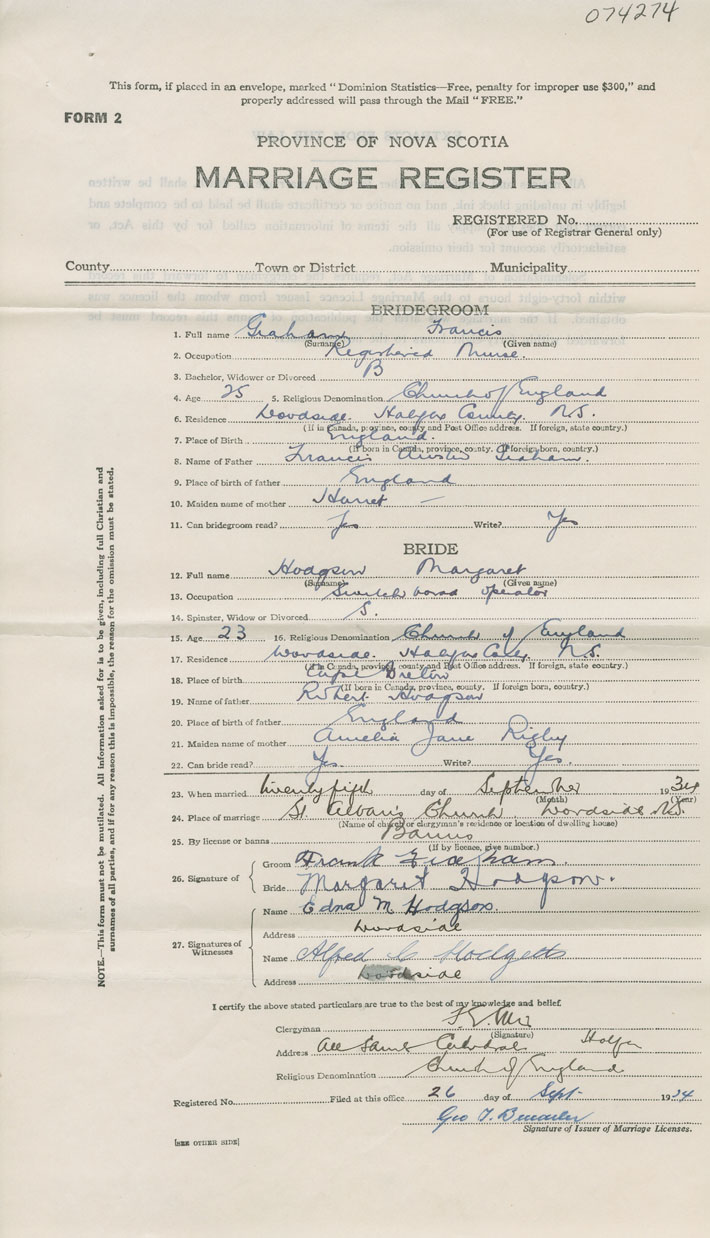 074274
This form, if placed in an envelope, marked "Dominion Statistics—Free, penalty for improper use $300," and
properly addressed will pass through the Mail "FREE."
FORM 2
PROVINCE OF NOVA SCOTIA
MARRIAGE REGISTER
REGISTERED No.
(For use of Registrar General only)
County Town or District Municipality
BRIDEGROOM
1. Full name Graham Francis
(Surname) (Given name)
2. Occupation Registered Nurse.
3. Bachelor, Widower or Divorced B
4. Age 25 5. Religious Denomination Church of England
6. Residence Woodside. Halifax County. N.S.
(If in Canada, province, county and Post Office address. If foreign, state country.)
7. Place of Birth England.
(If born in Canada, province, county. If foreign born, country.)
8. Name of Father Francis Graham.
9. Place of birth of father England
10. Maiden name of mother Harriet —
11. Can bridegroom read? Yes Write? Yes
BRIDE
12. Full name Hodgson Margaret
(Surname) (Given name)
13. Occupation Switch board operator
14. Spinster, Widow or Divorced S.
15. Age 23 16. Religious Denomination Church of England
17. Residence Woodside. Halifax N.S.
(If in Canada, province, county and Post Office address. If foreign, state country.)
18. Place of birth Cape Breton
(If born in Canada, province, county. If foreign born, country.)
19. Name of father Robert Hodgson
20. Place of birth of father England
21. Maiden name of mother Amelia Jane Rigby
22. Can bride read? Yes. Write? Yes.
23. When married twenty fifth day of September 1934
(Month) (Year)
24. Place of marriage St. Alban's Church Woodside N.S.
(Name of church or clergyman's residence or location of dwelling house)
25. By license or banns Banns
(If by licence, give number.)
26. Signature of
Groom Frank Graham.
Bride Margaret Hodgson.
27. Signatures of Witnesses
Name Edna M Hodgson.
Address Woodside
Name Alfred C Hodgetts
Address Woodside
I certify the above stated particulars are true to the best of my knowledge and belief.
Clergyman
(Signature)
Address All Saints Cathedral Halifax
Religious Denomination Church of England
Registered No. Filed at this office 26 day of Sept. 1934
Geo T.
Signature of Issuer of Marriage Licenses.
[SEE OTHER SIDE]
NOTE.—This form must not be mutilated. All information asked for is to be given, including full Christian and
surnames of all parties, and if for any reason this is impossible, the reason for the omission must be stated.